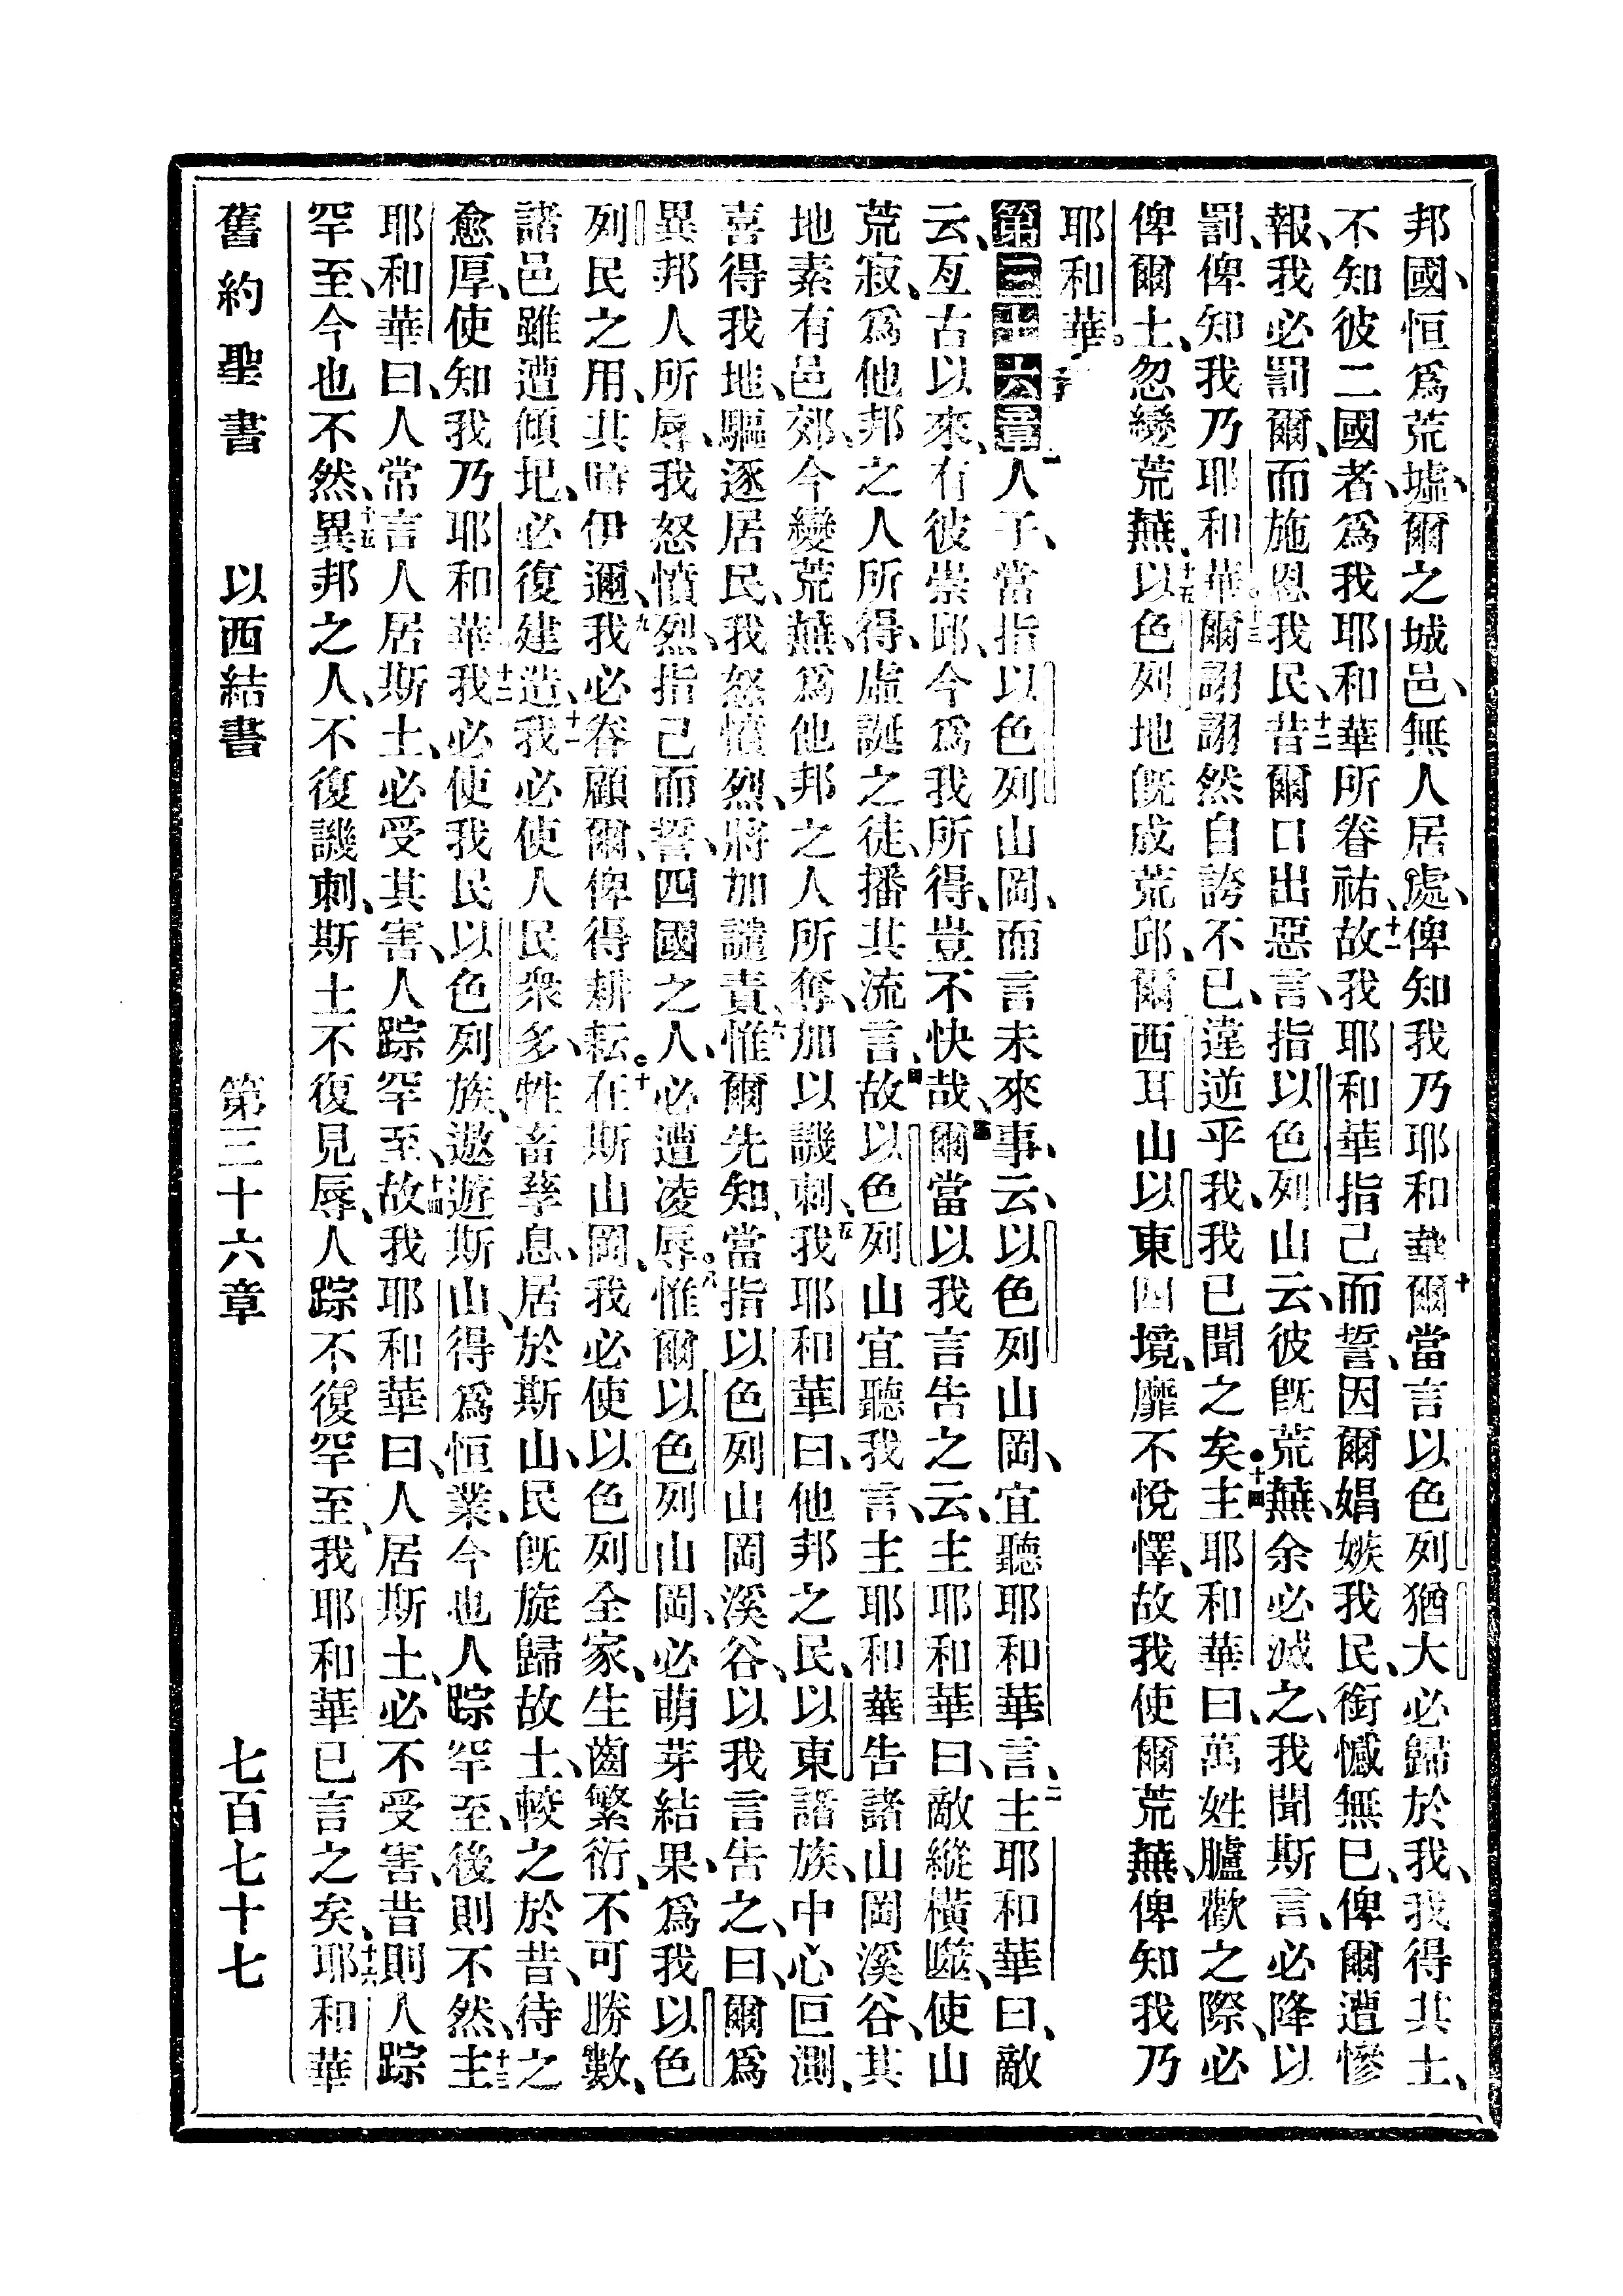 邦國、恒爲荒墟、爾之城邑、無人居處、俾知我乃耶和華、十爾當言以色列猶大必歸於我、我得其土、
不知彼二國者、爲我耶和華所眷祐、十一故我耶和華指己而誓、因爾娼嫉我民、銜憾無已、俾爾遭慘
報、我必罰爾、而施恩我民、十二昔爾口出惡言、指以色列山云、彼旣荒蕪、余必滅之、我聞斯言、必降以
罰、俾知我乃耶和華。十三爾詡詡然自誇不已、違逆乎我、我已聞之矣。十四主耶和華曰、萬姓臚歡之際、必
俾爾土、忽變荒蕪、十五以色列地旣成荒邱、爾西耳山以東四境、靡不悅懌、故我使爾荒蕪、俾知我乃
耶和華。
第三十六章一人子、當指以色列山岡、而言未來事、云、以色列山岡、宜聽耶和華言、二主耶和華曰、敵
云、亙古以來、有彼崇邱、今爲我所得、豈不快哉、三爾當以我言告之云、主耶和華曰、敵縱橫噬、使山
荒寂、爲他邦之人所得、虛誕之徒、播其流言、四故以色列山宜聽我言、主耶和華告諸山岡溪谷、其
地素有邑郊、今變荒蕪、爲他邦之人所奪、加以譏刺、五我耶和華曰、他邦之民、以東諸族、中心叵測、
喜得我地、驅逐居民、我怒憤烈、將加譴責、六惟爾先知、當指以色列山岡溪谷、以我言告之、曰、爾爲
異邦人所辱、我怒憤烈、指己而誓、四國之人、必遭凌辱。八惟爾以色列山岡、必萌芽結果、爲我以色
列民之用、其時伊邇、九我必眷顧爾、俾得耕耘。十在斯山岡、我必使以色列全家、生齒繁衍、不可勝數、
諸邑雖遭傾圮、必復建造、十一我必使人民衆多、牲畜孳息、居於斯山、民旣旋歸故土、較之於昔、待之
愈厚、使知我乃耶和華、十二我必使我民以色列族、遨遊斯山、得爲恒業、今也人踪罕至、後則不然、十三主
耶和華曰、人常言人居斯土、必受其害、人踪罕至、十四故我耶和華曰、人居斯土、必不受害、昔則人踪
罕至、今也不然、十五異邦之人、不復譏刺、斯土不復見辱、人踪不復罕至、我耶和華已言之矣、十六耶和華
舊約聖書 以西結書 第三十六章 七百七十七